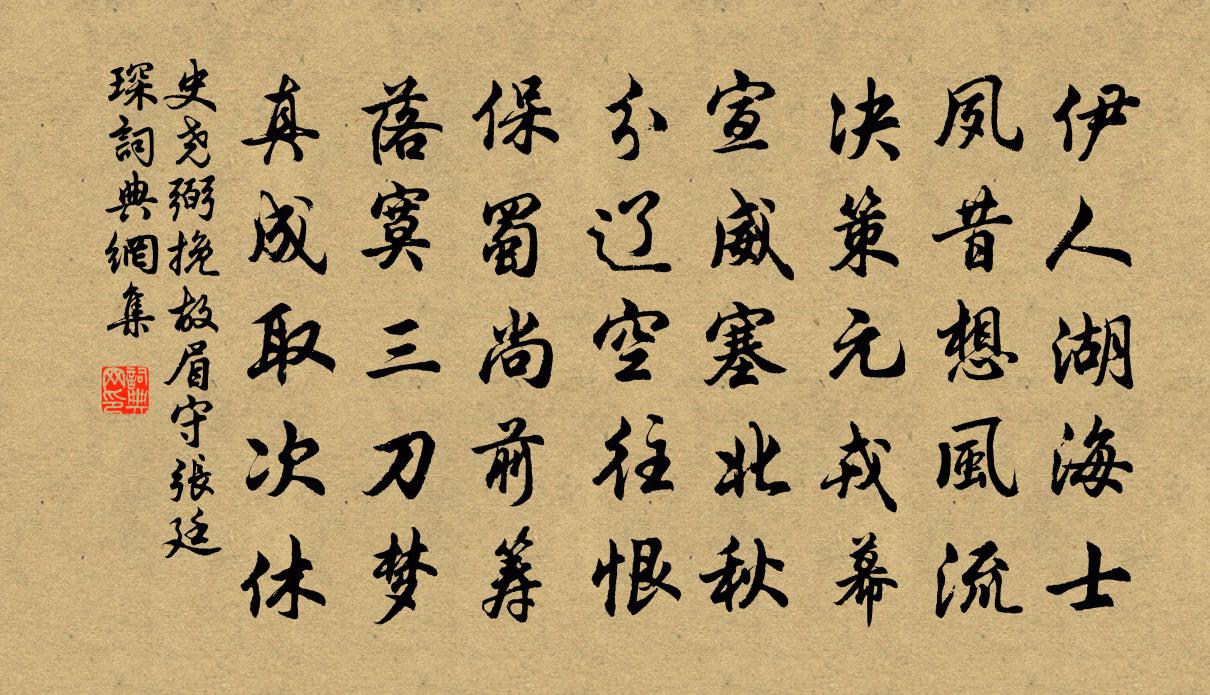 伊人湖海士
夙昔想風流
决策元戎幕
宣威塞北秋
分辽空往恨
保蜀尚前筹
落寞三刀梦
真成取次休
史尧弼挽故眉守張廷
琛詞典網集
詞典
网印